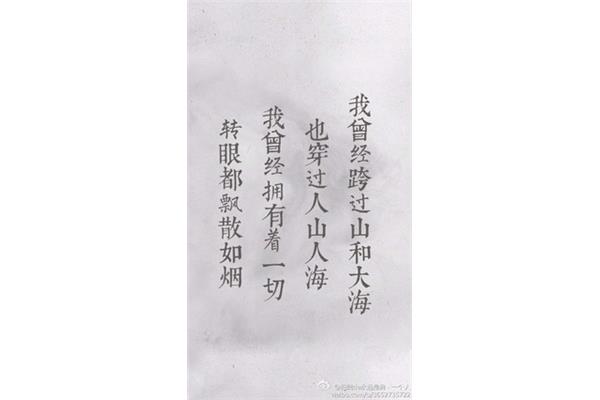 我曾经跨过山和大海
也穿过人山人海
我曾经拥有着一切
转眼都飘散如烟